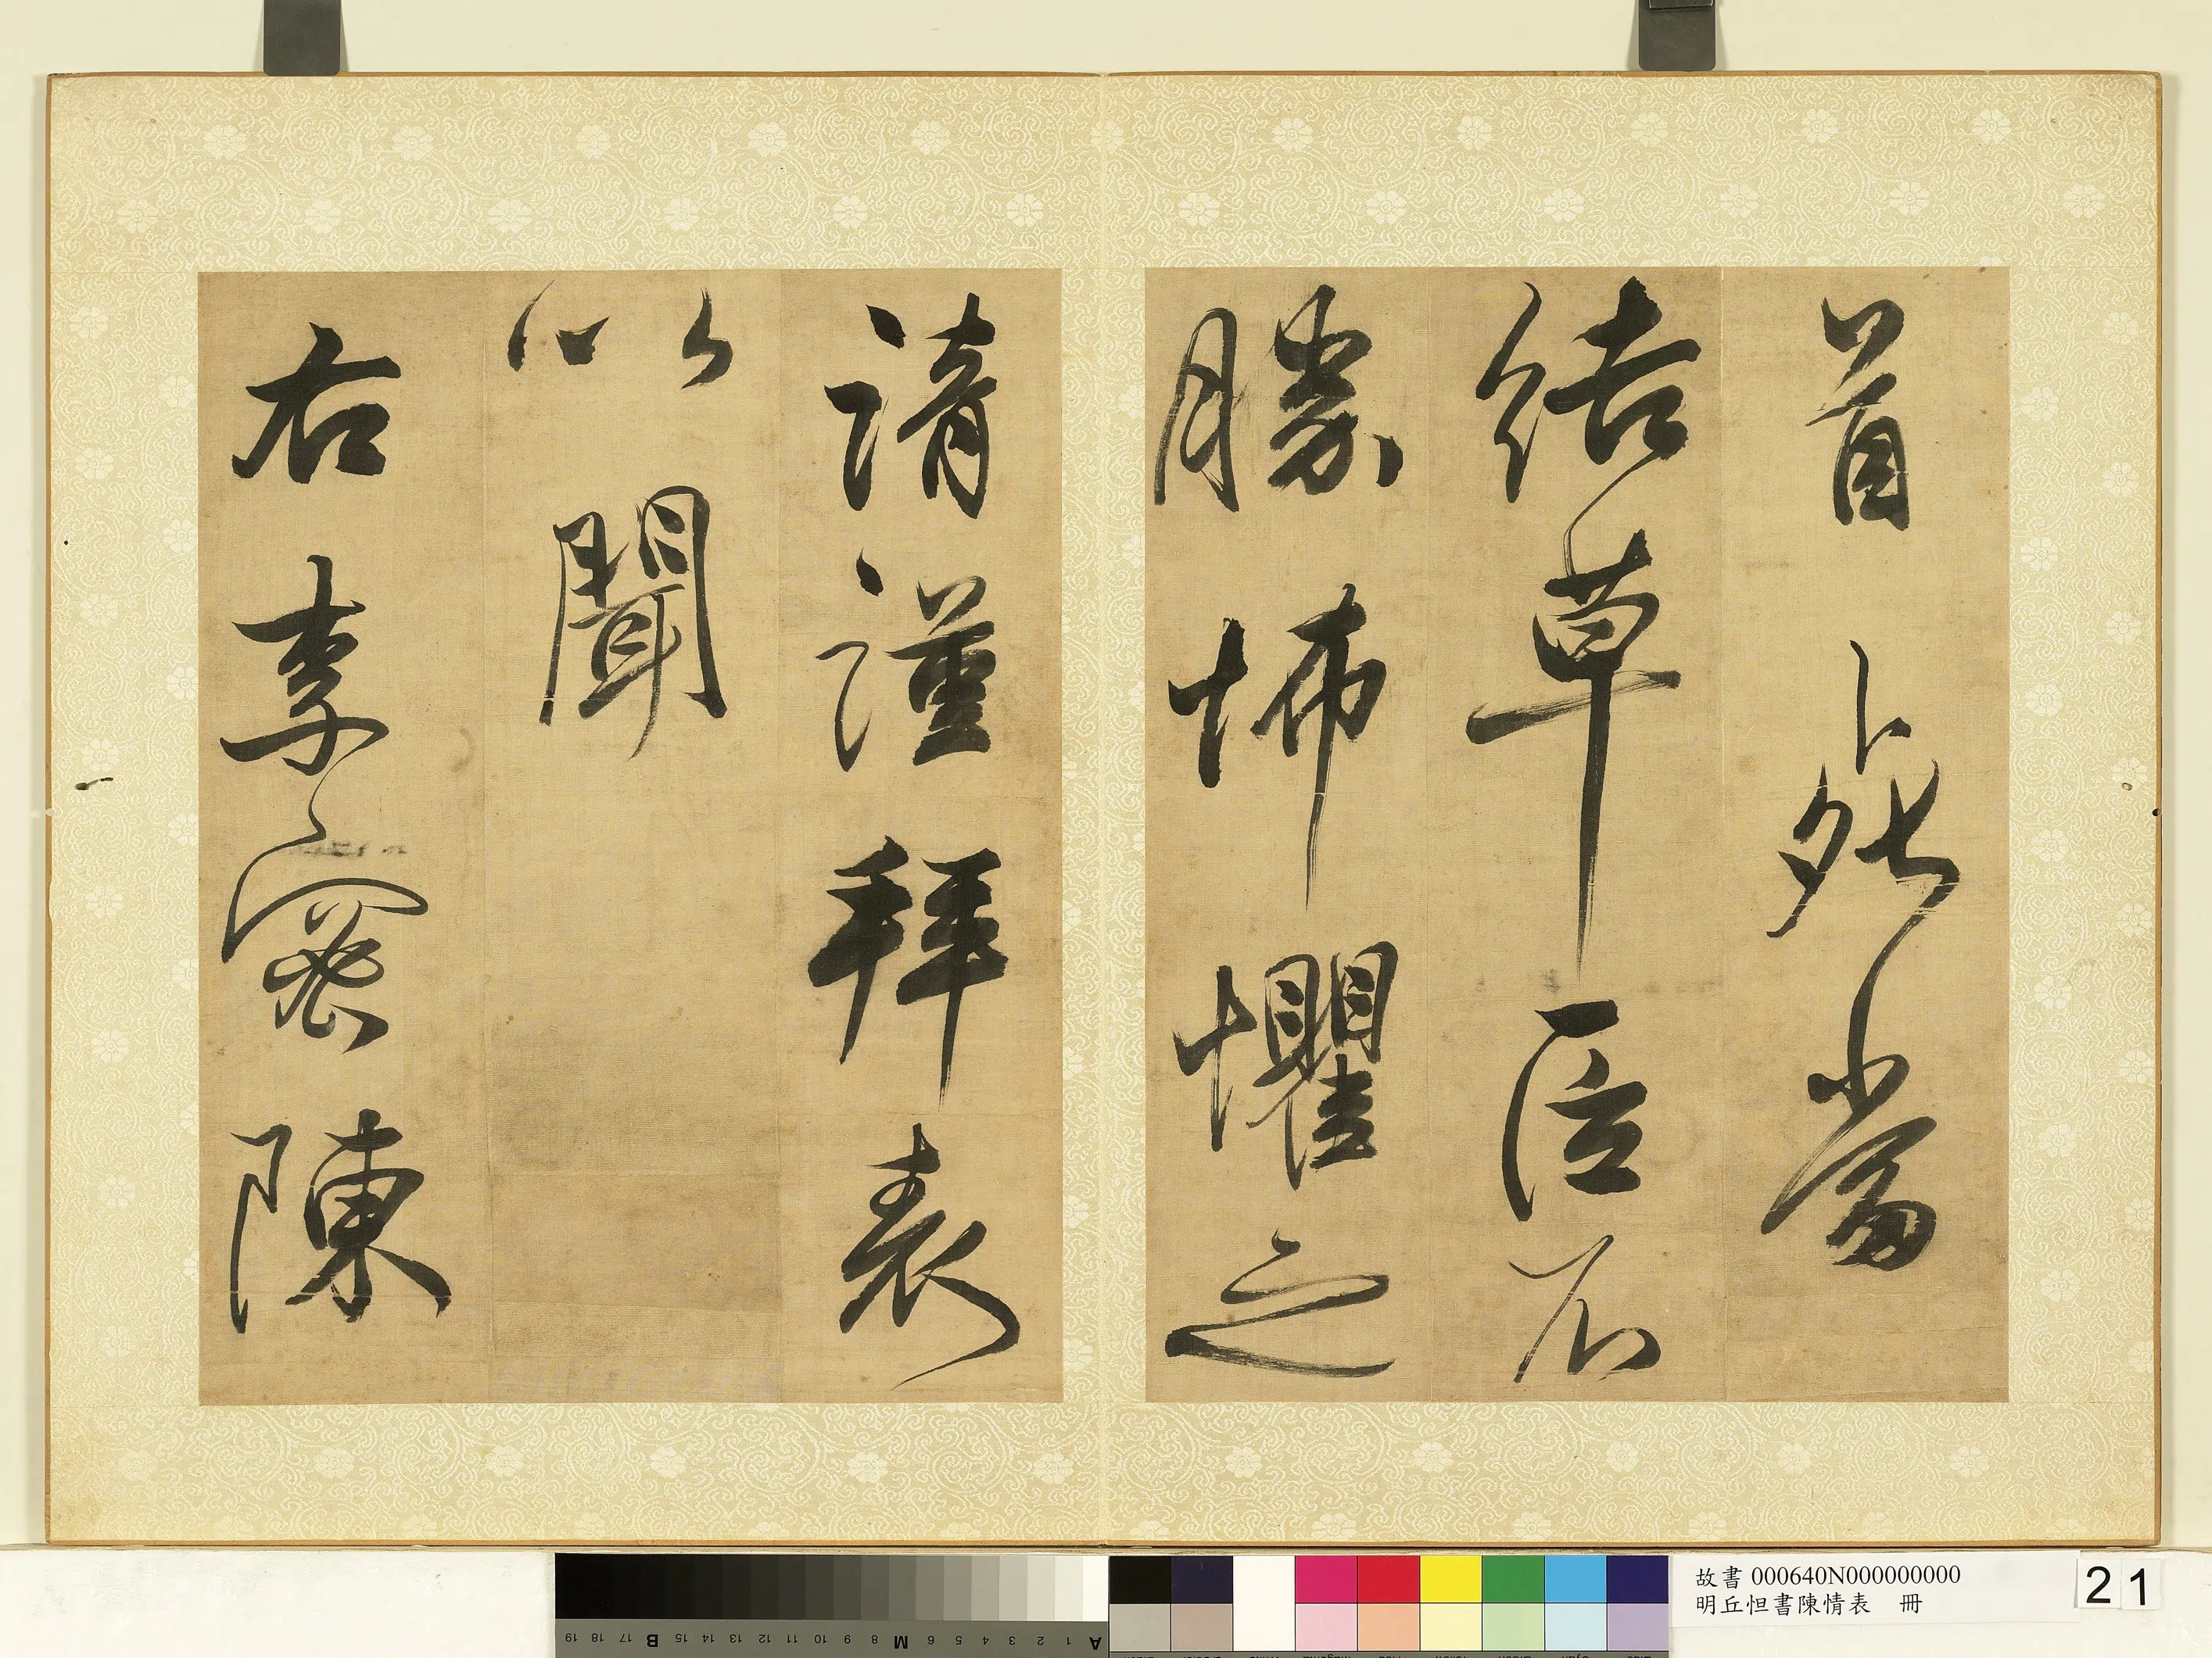 首死當
結草臣不
勝怖懼之
請謹拜表
以聞
右李密陳
故書 000640N000000000
明丘怛書陳情表 冊
21
A 1 2 3 4 5 6 M 8 9 10 11 12 13 14 15 B 17 18 19